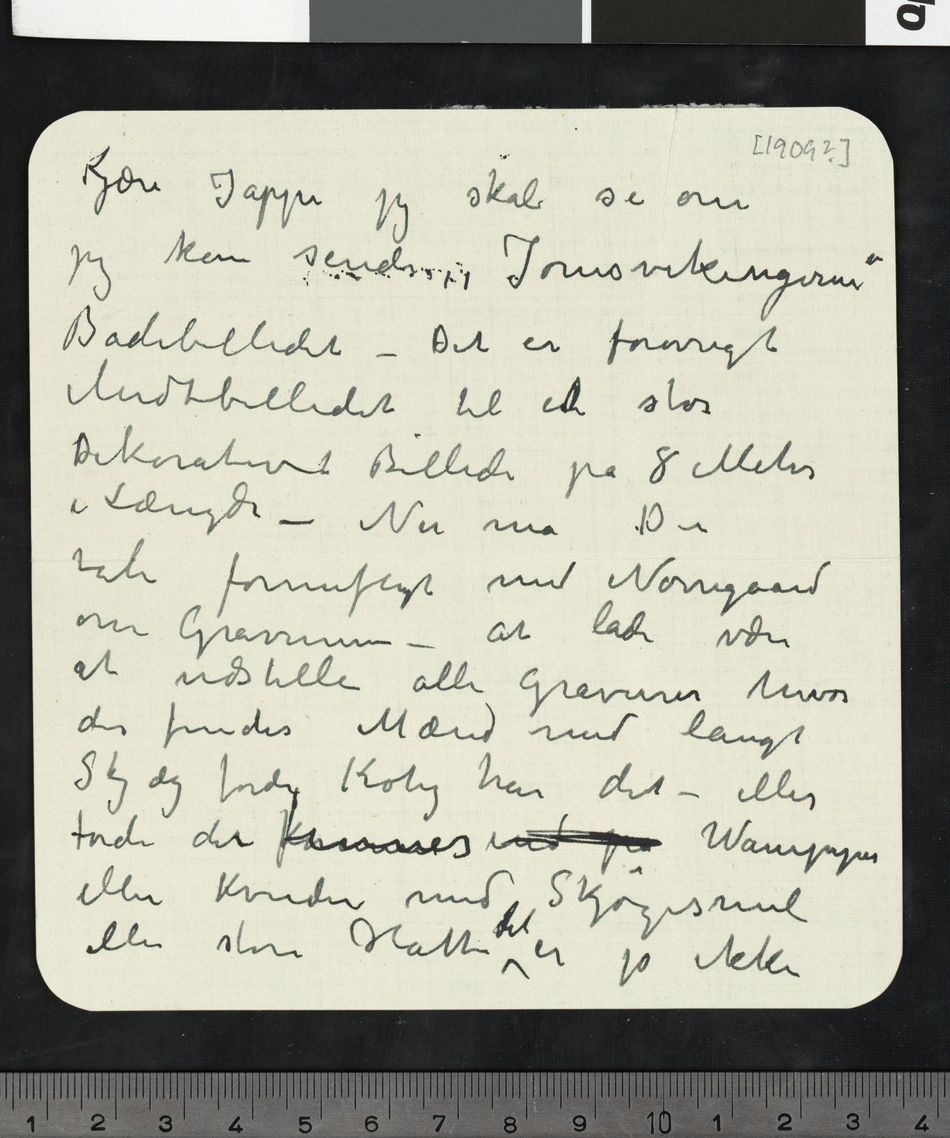 [1909?]
Kjære Jappe jeg skal se om
jeg kan sende „Jomsvikingerne"
Badebilledet – Det er forøvrigt
Midtbilledet til et stor
Dekorativt Billede pa 8 Meter
i Længde – Nu må De
tale fornuftigt med Nørregaard
om Gravurerne – at lade være
at udstille alle Gravurer hvor
der findes Mænd med langt
Skjæg fordi Kolig har det – eller
fordi der findes ind på Wampyer
eller Kvinder med Skjøgesmil
eller store Hatte det er jo ikke
1 2 3 4 5 6 7 8 9 10 1 2 3 4